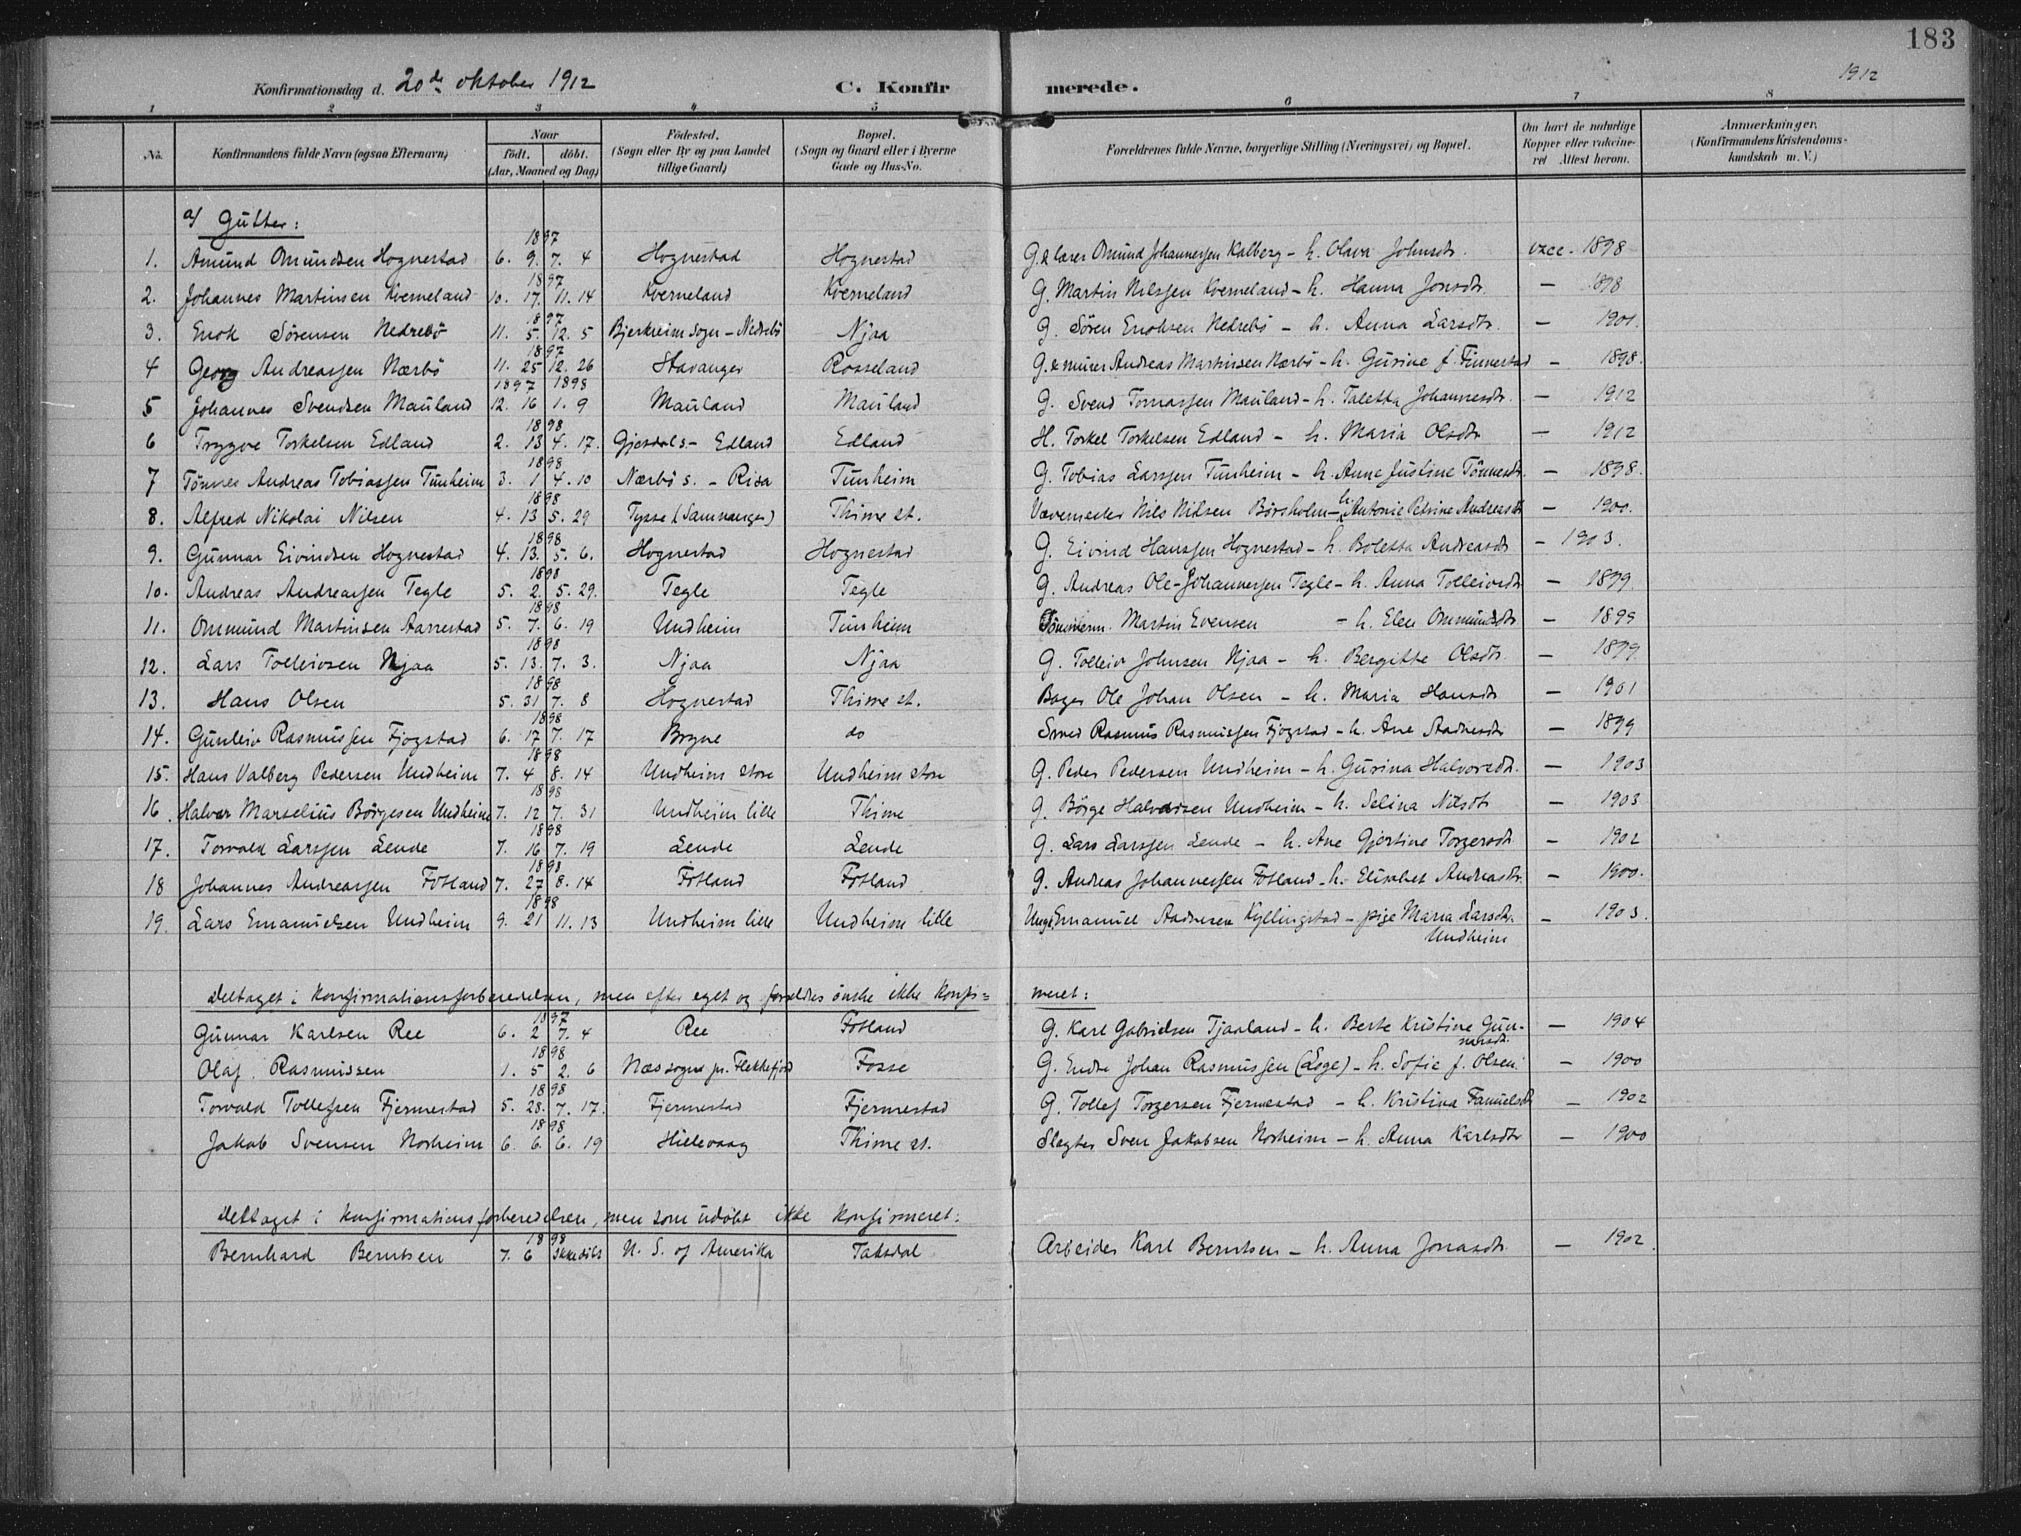 183
Konfirmationsdag d. 20de oktober 1912 C. Konfirmerede. 1912
1 2 3 4 5 6 7 8
No. Konfirmandens fulde Navn (ogsaa Efternavn) Naar födt. döbt. (Aar, Maaned og Dag) Födested. (Sogn eller By og paa Landet tillige Gaard) Bopæl. (Sogn og Gaard eller i Byerne Gade og Hus-No. Forældrenes fulde Navne, borgerlige Stilling (Næringsvei) og Bopæl. Om havt de naturlige Kopper eller vakcineret Attest herom. Anmærkninger, (Konfirmandens Kristendomskundskab m. V.)
a/ Gutter:
1. Amund Omundsen Hognestad 1897 6. 9. 7. 4 Hognestad Hognestad G. & lærer Omund Johannessen Kalberg – h. Olava Johnsdtr. vacc. 1898
2. Johannes Martinsen Kverneland 1897 10. 17. 11. 14 Kverneland Kverneland G. Martin Nilssen Kverneland – h. Hanna Jonsdtr. — 1898
3. Enok Sörensen Nedrebö 1897 11. 5. 12. 5 Bjerkreim sogn – Nedrebö Njaa G. Sören Enoksen Nedrebö – h. Anna Larsdtr. — 1901.
4 Georg Andreassen Nærbö 1897 11. 25 12. 26 Stavanger Rosseland G. & murer Andreas Martinsen Nærbö – h. Gurine f. Finnestad — 1898.
5 Johannes Svendsen Mauland 1897 1898 12. 16 1. 9 Mauland Mauland G. Svend Tomassen Mauland – h. Taletta Johannesdtr. — 1912
6 Trygve Torkelsen Edland 1898 2. 13 4. 17. Gjesdal s. – Edland Edland H. Torkel Torkelsen Edland – h. Maria Olsdtr — 1912
7 Tönnes Andreas Tobiassen Tunheim 1898 3. 1 4. 10 Nærbö s. – Risa Tunheim G. Tobias Larssen Tunheim – h. Anne Justine Tönnesdtr. — 1898.
8. Alfred Nikolai Nilsen 1898 4. 13 5. 29 Tysse (Samnanger) Thime st. Vævemester Nils Nilsen Börsholm – h. Antonie Petrine Andreasdtr — 1900.
9. Gunnar Eivindsen Hognestad 1898 4. 13. 5. 6. Hognestad Hognestad G. Eivind Hanssen Hognestad – h. Boletta Andreasdtr — 1903.
10. Andreas Andreassen Tegle 1898 5. 2. 5. 29. Tegle Tegle G. Andreas Ole-Johannessen Tegle – h. Anna Tolleivsdtr — 1899.
11. Ommund Martinsen Aarrestad 1898 5. 7. 6. 19 Undheim Tunheim Tömmerm. Martin Evensen – h. Elen Ommundsdtr — 1899
12. Lars Tolleivsen Njaa 1898 5. 13. 7. 3. Njaa Njaa G. Tolleiv Johnsen Njaa – h. Bergitte Olsdtr. — 1899.
13. Hans Olsen 1898 5. 31 7. 8 Hognestad Thime st. Bager Ole Johan Olsen – h. Maria Hansdtr — 1901
14. Gunleiv Rasmussen Fjogstad 1898 6. 17 7. 17 Bryne do Smed Rasmus Rasmussen Fjogstad – h. Ane Aadnesdtr — 1899
15. Hans Valberg Pedersen Undheim 1898 7. 4 8. 14 Undheim store Undheim store G. Peder Pedersen Undheim – h. Gurina Halvorsdtr. — 1903
16. Halvor Marselius Börgesen Undheim 1898 7. 12 7. 31 Undheim lille Thime G. Börge Halvorsen Undheim – h. Selina Nilsdtr — 1903
17. Torvald Larssen Lende 1898 7. 16 7. 19 Lende Lende G. Lars Larssen Lende – h. Ane Gjertine Torgersdtr — 1902
18 Johannes Andreassen Fotland 1898 7. 27 8. 14 Fotland Fotland G. Andreas Johannessen Fotland – h. Elisabet Andreasdtr. — 1900.
19. Lars Emanuelsen Undheim 1898 9. 21 11. 13 Undheim lille Undheim lille Ungk. Emanuel Aadnesen Kyllingstad – pige Maria Larsdtr. — 1903.
Undheim
Deltaget i konfirmationsforberedelsen, men efter eget og forældres önske ikke konfirmeret:
Gunnar Karlsen Ree 1897 6. 2 7. 4 Ree Fotland G. Karl Gabrielsen Tjaaland – h. Berte Kristine Gunnarsdtr. — 1904
Olaf Rasmussen 1898 1. 5 2. 6 Næs sogn pr. Flekkefjord Fosse G. Endre Johan Rasmussen (Lge) – h. Sofie f. Olsen — 1900
Torvald Tollefsen Fjermestad 1898 5. 28. 7. 17. Fjermestad Fjermestad G. Tollef Torgersen Fjermestad – h. Kristina Samuelsdtr — 1902
Jakob Svensen Norheim 1898 6. 6. 6. 19 Hillevaag Thime st. Slagter Sven Jakobsen Norheim – h. Anna Karlsdtr — 1900
Deltaget i konfirmationsforberedelsen, men som udöbt ikke konfirmeret:
Bernhard Berntsen 1898 7. 6 Ikke döbt N. S. of Amerika Tadsdal Arbeider Karl Berntsen – h. Anna Jonasdtr. — 1902.